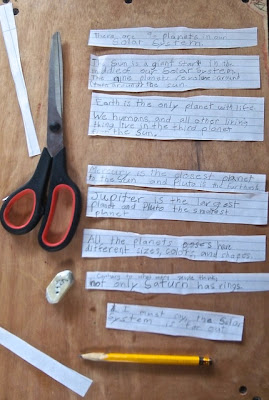 There are planets in our
Solar System.
The Sun is a giant star! Is the
middle of our Solar System.
The nine planets revolve around
around the sun.
Earth is the only planet with life.
We humans, and all other living
thing live in the third planet
the Sun.
Mercury is the closest planet
to the Sun and Pluto is the furthest
Jupiter is the largest
planet and Pluto the smallest
planet.
All the planets have
different sizes, colors, and shapes.
what many people think,
not only Saturn has rings.
must say, the Solar
System is far out!